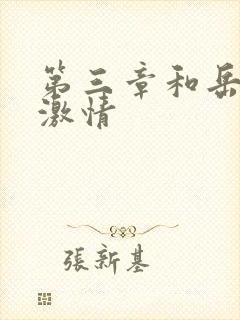 第三章和岳
激情
張新基